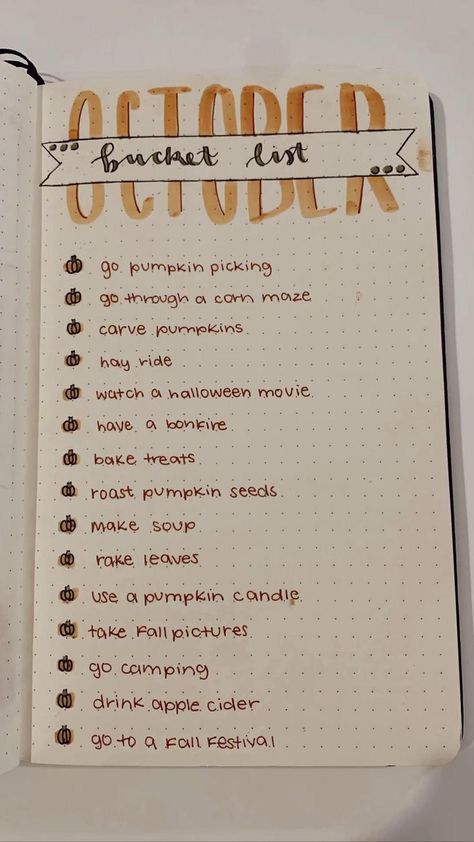 OCTOBER
bucket list
go pumpkin picking
go through a corn maze
carve pumpkins
hay ride
watch a halloween movie
have a bonfire
bake treats
roast pumpkin seeds
make soup
rake leaves
use a pumpkin candle
take Fall pictures
go camping
drink apple cider
go to a Fall Festival